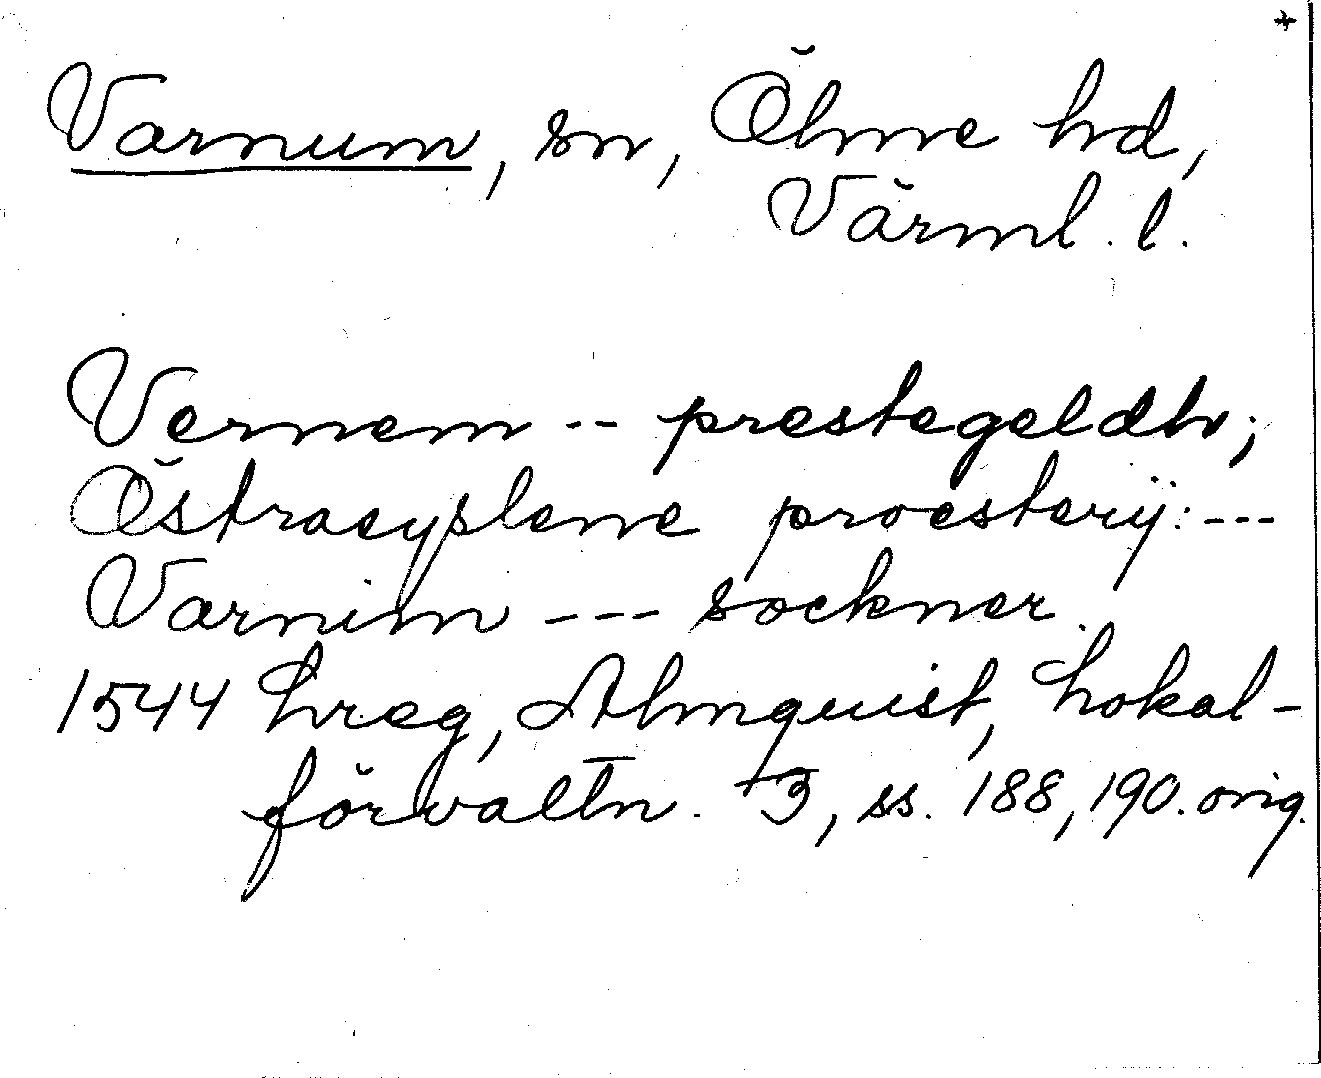 Varnum, sn, Ölme hd,
Värml. l.
Vernem -- prestegeldh;
Östraeyslene proesterij: ---
Varnim --- sockner.
1544 hreg, Almquist, Lokal-
förvaltn. 3, ss. 188, 190. orig.